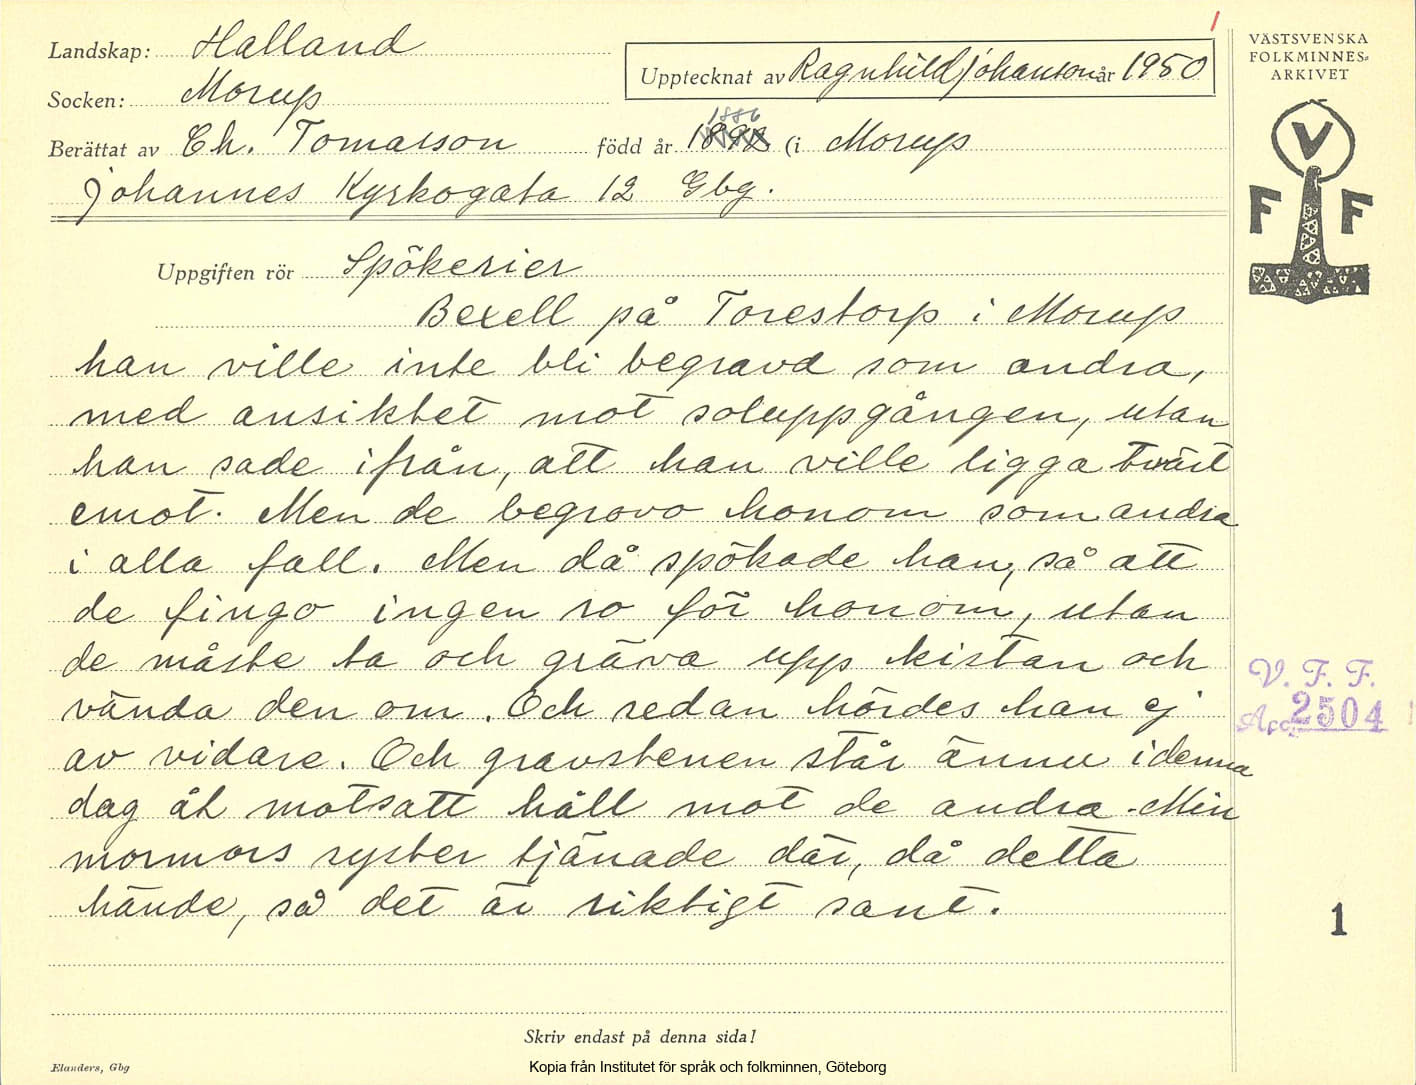 1
Landskap: Halland
Upptecknat av Ragnhild Johanson år 1950
VÄSTSVENSKA
FOLKMINNES=
ARKIVET
Socken: Morup
1886
Berättat av Ch. Tomasson född år (i Morup
Johannes Kyrkogata 12 Gbg.
V
F F
Uppgiften rör Spökerier
Bexell på Torestorp i Morup
han ville inte bli begravd som andra,
med ansiktet mot soluppgången, utan
han sade ifrån, att han ville ligga tvärt
emot. Men de begrovo honom som andra
i alla fall. Men då spökade han, så att
de fingo ingen ro för honom, utan
de måste ta och gräva upp kistan och
vända den om. Och sedan hördes han ej
av vidare. Och gravstenen står ännu i denna
dag åt motsatt håll mot de andra. Min
mormors syster tjänade där, då detta
hände, så det är riktigt sant.
V. F. F.
Acc. 2504
1
Skriv endast på denna sida!
Elanders, Gbg
Kopia från Institutet för språk och folkminnen, Göteborg